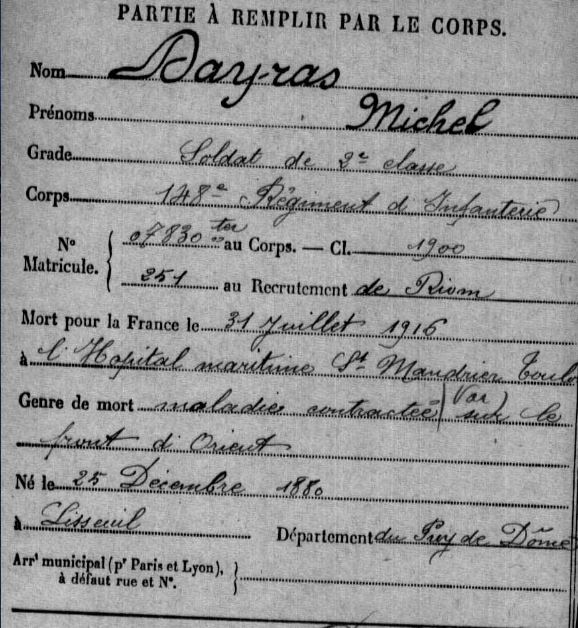 PARTIE À REMPLIR PAR LE CORPS.
Nom Dayras
Prénoms Michel
Grade Soldat de 2e classe
Corps 148e Régiment d'Infanterie
No Matricule. 07830 ter au Corps. — Cl. 1900
251 au Recrutement de Riom
Mort pour la France le 31 Juillet 1916
à l'Hopital maritime St Mandrier Toulo
(Var)
Genre de mort maladie contractée sur le
front d'Orient
Né le 25 Décembre 1880
à Lisseuil Département du Puy de Dôme
Arrt municipal (pr Paris et Lyon),
à défaut rue et No.